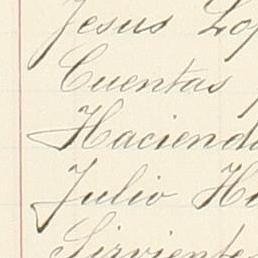 Jesus Lop
Cuentas
Haciend
Julio He
Sirviente